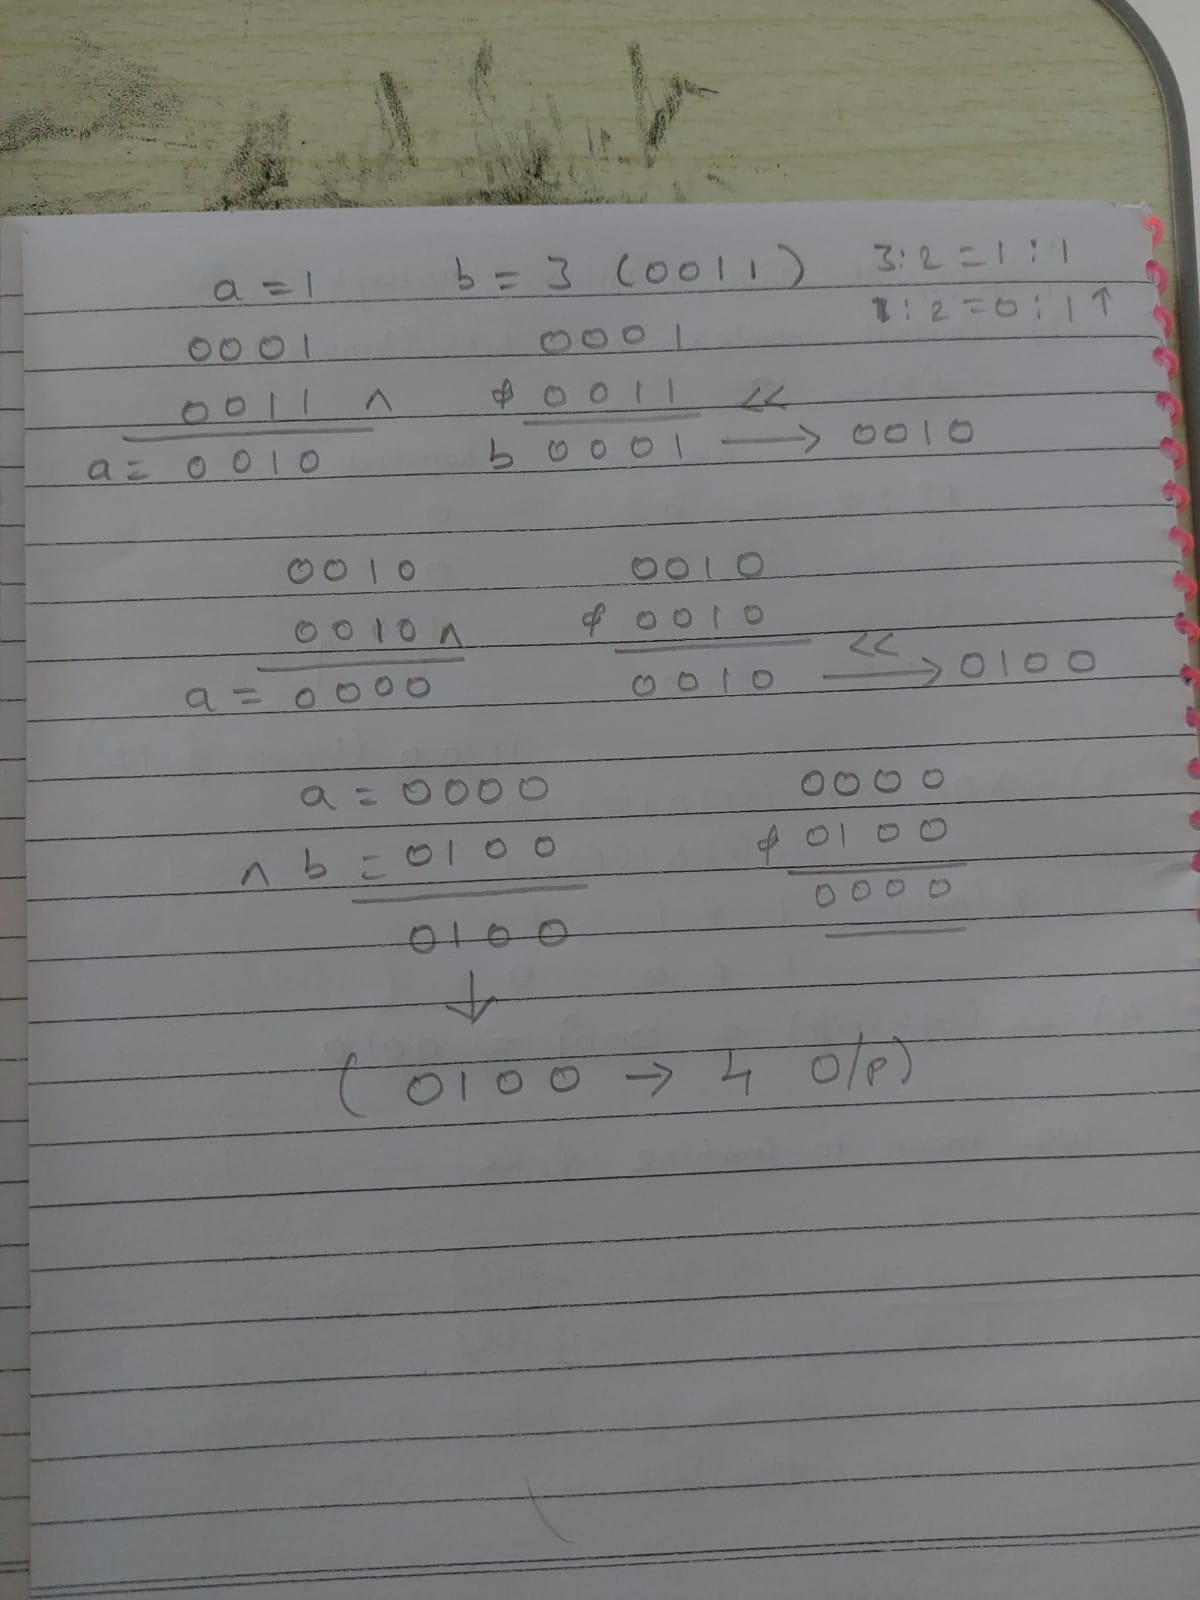 a = 1 b = 3 (0011) 3:2 = 1:1
1:2 = 0:1 ↑
0001 0001
0011 ^ & 0011 <<
a = 0010 b 0001 → 0010
0010 0010
0010 ^ & 0010 <<
a = 0000 0010 → 0100
a = 0000 0000
^ b = 0100 & 0100
0100 0000
↓
(0100 → 4 O/P)